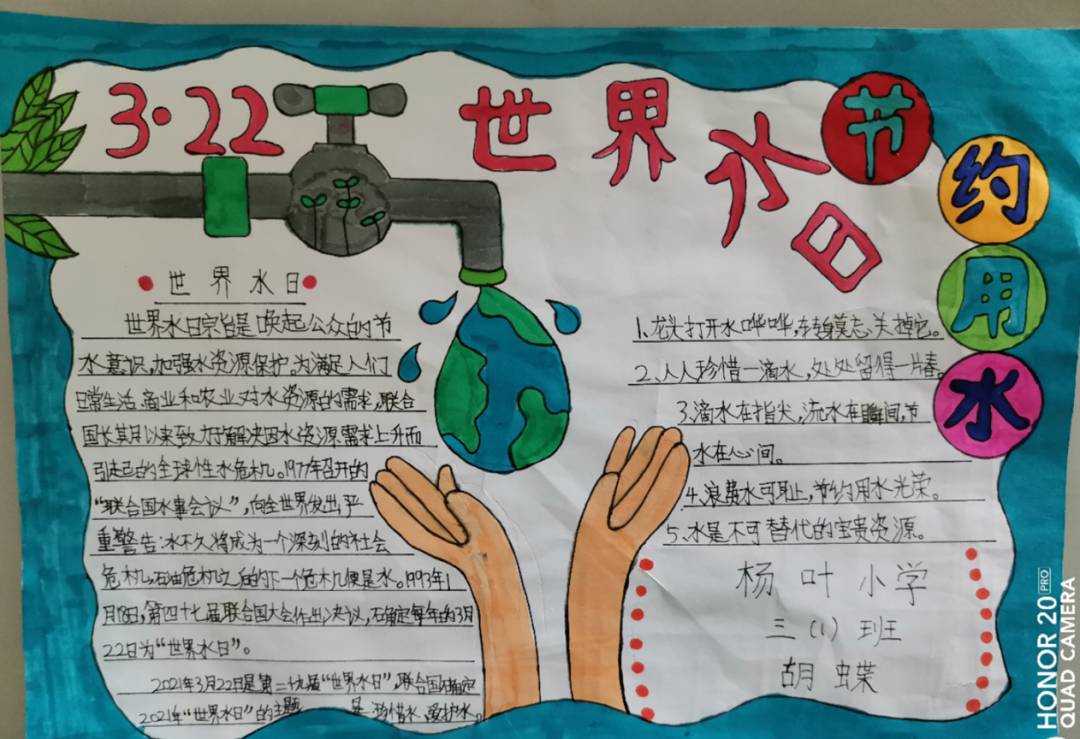 3·22 世界水日
节约用水
世界水日
世界水日宗旨是唤起公众的节
水意识,加强水资源保护。为满足人们
日常生活、商业和农业对水资源的需求,联合
国长期以来致力于解决因水资源需求上升而
引起的全球性水危机。1977年召开的
“联合国水事会议”,向全世界发出严
重警告:水不久将成为一个深刻的社会
危机,石油危机之后的下一个危机便是水。1993年1
月18日,第四十七届联合国大会作出决议,确定每年的3月
22日为“世界水日”。
2021年3月22日是第二十九届“世界水日”,联合国确定
2021年“世界水日”的主题 是 珍惜水、爱护水。
1、龙头打开水哗哗,转身莫忘关掉它。
2、人人珍惜一滴水,处处留得一片春。
3、滴水在指尖,流水在瞬间,节
水在心间。
4、浪费水可耻,节约用水光荣。
5、水是不可替代的宝贵资源。
杨叶小学
三(1)班
胡蝶
HONOR 20 PRO
QUAD CAMERA